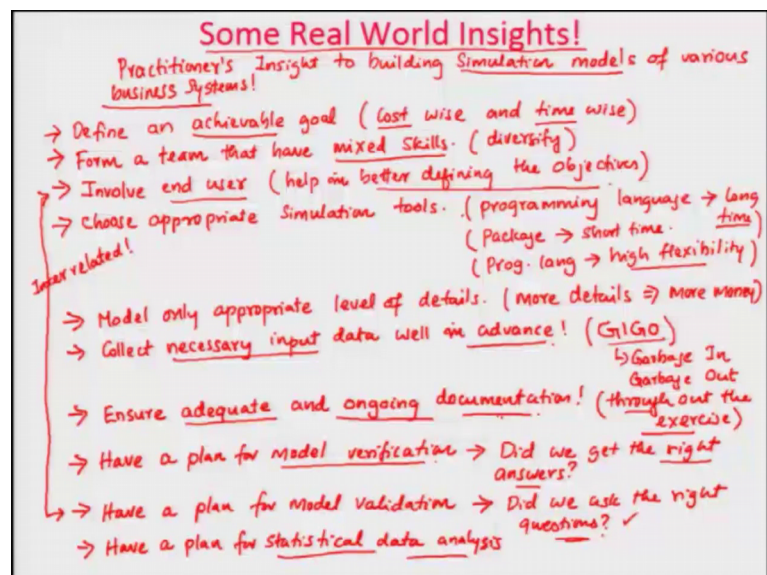 Some Real World Insights!
Practitioner's Insight to building Simulation models of various
business systems!
→ Define an achievable goal (Cost wise and time wise)
→ Form a team that have mixed skills. (diversify)
→ Involve end user (help in better defining the objectives)
→ Choose appropriate Simulation tools. (programming language → long
time)
(Package → short time.
(Prog. lang → high flexibility)
Inter related!
→ Model only appropriate level of details. (more details ⇒ More money)
→ Collect necessary input data well in advance! (GIGO)
↳ Garbage In
Garbage Out
→ Ensure adequate and ongoing documentation! (through out the
exercise)
→ Have a plan for model verification → Did we get the right
answers?
→ Have a plan for model validation → Did we ask the right
questions? ✓
→ Have a plan for statistical data analysis